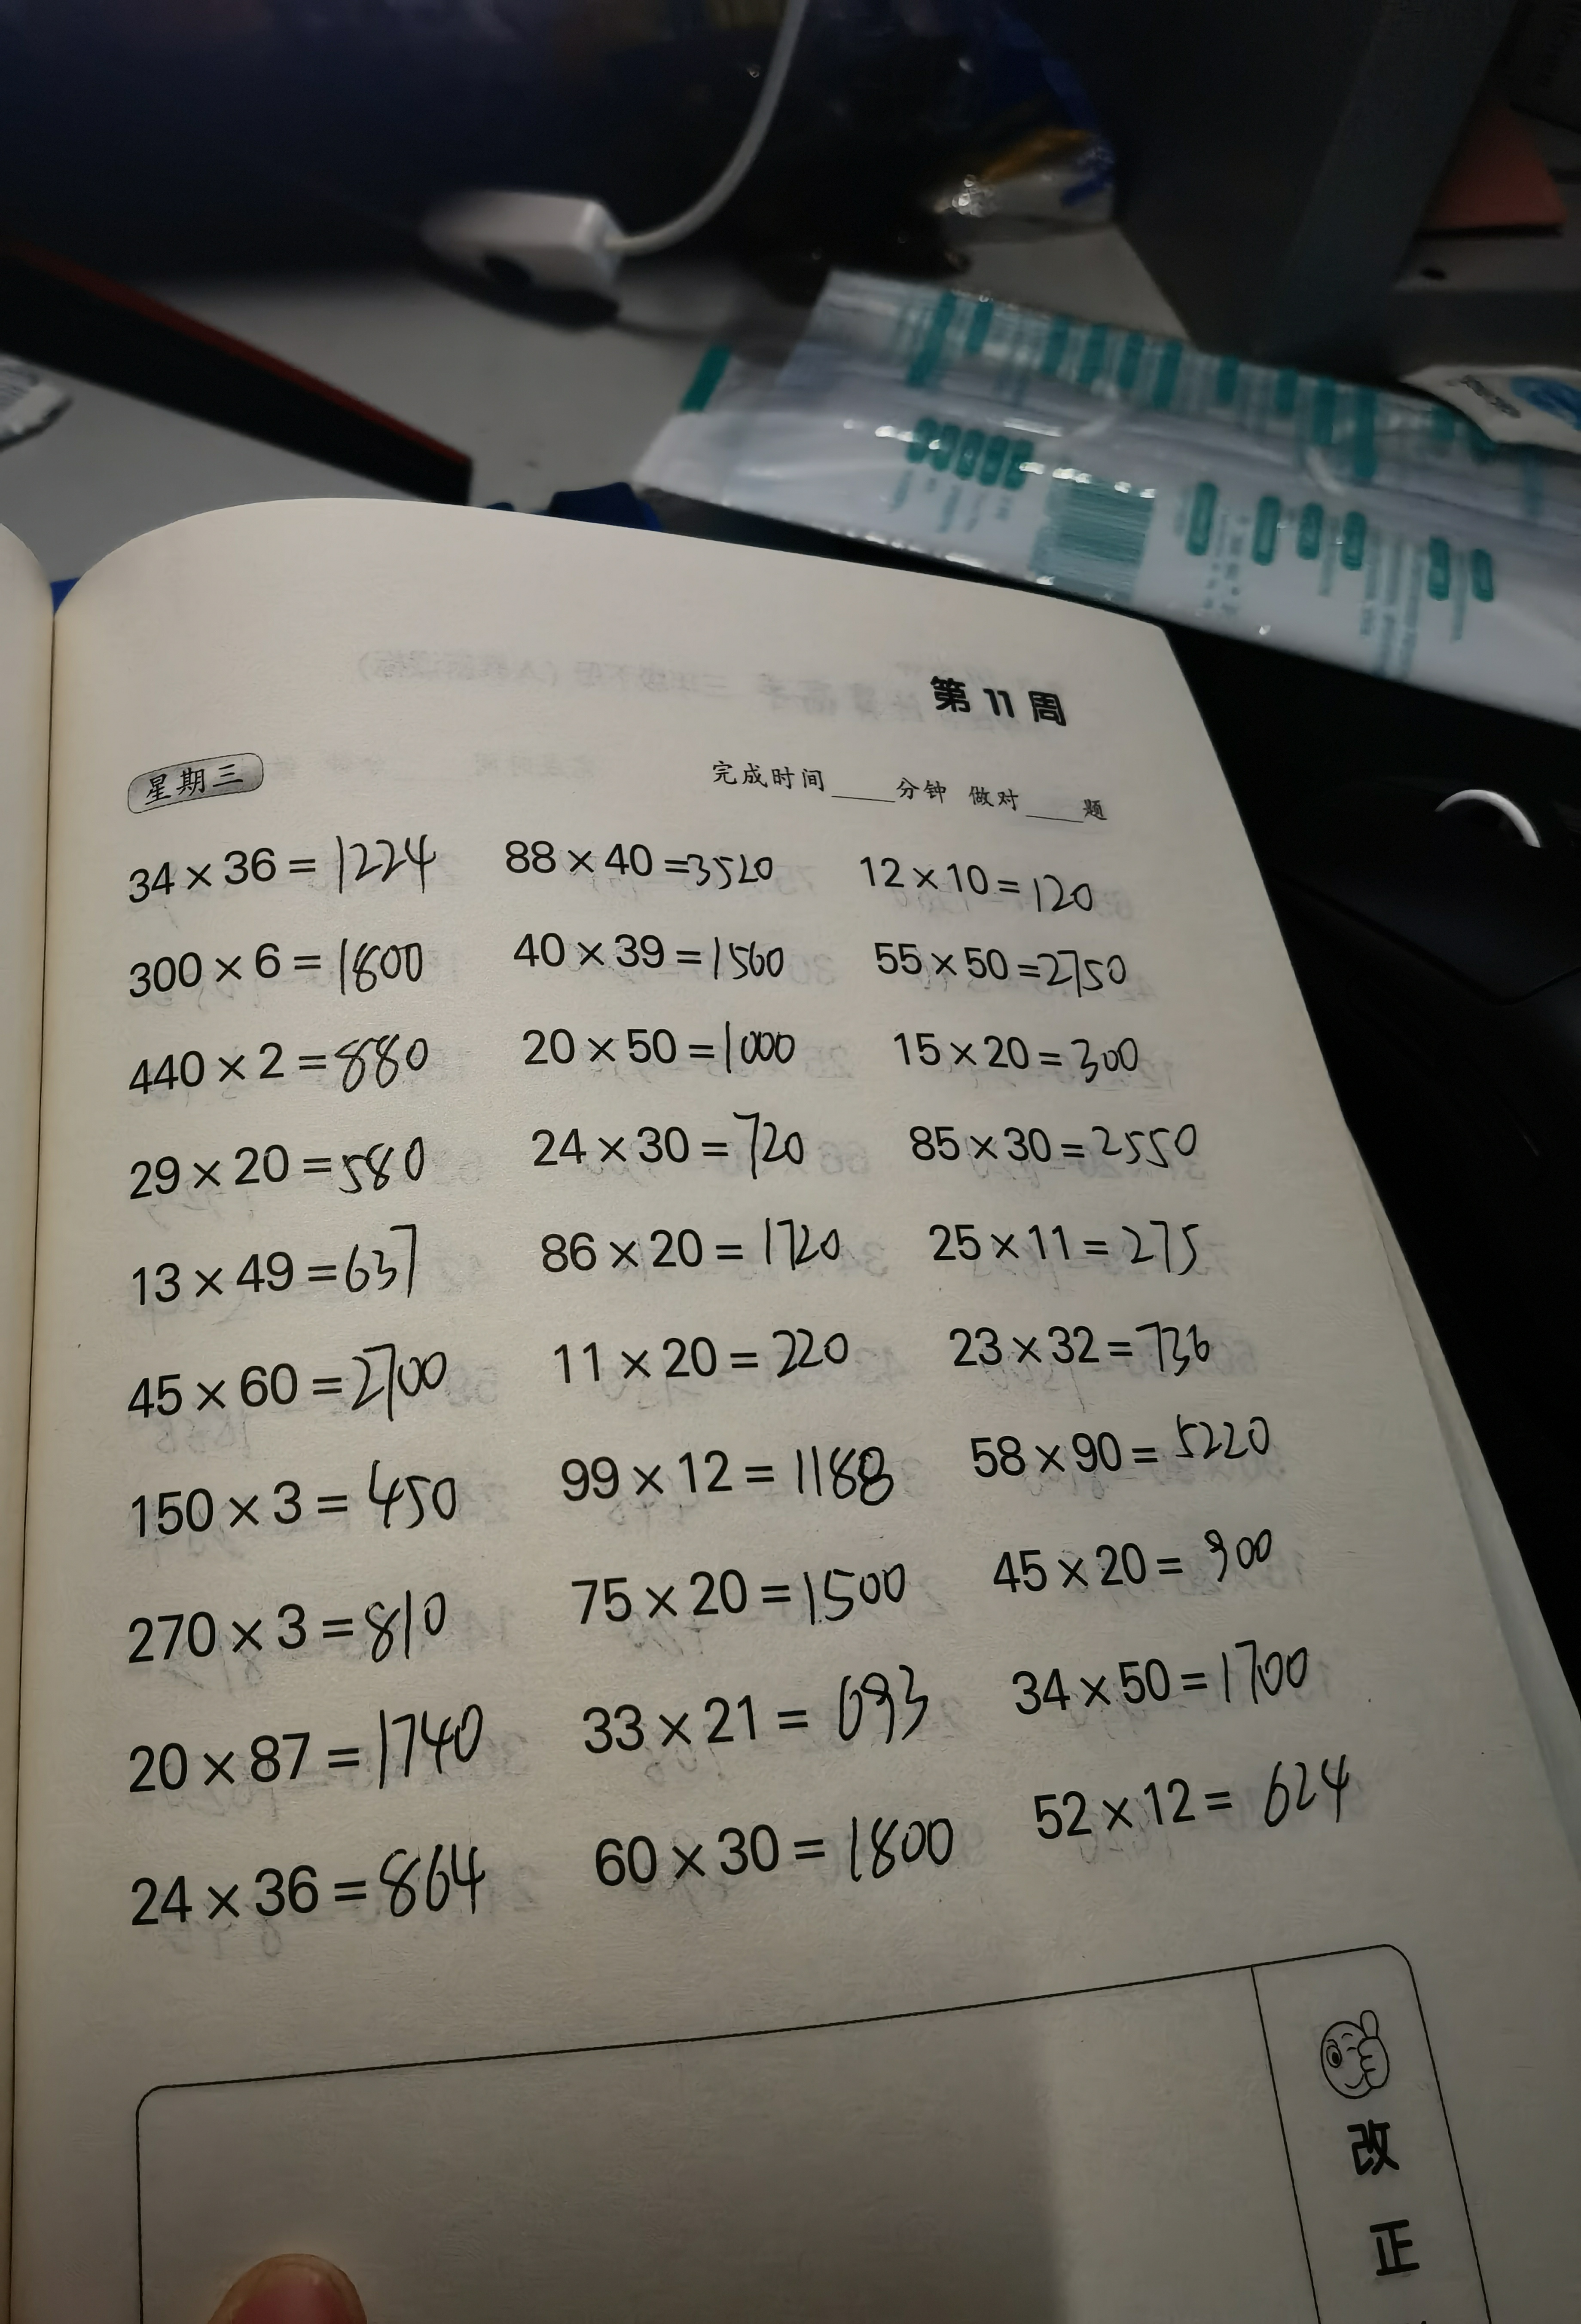 第 11 周
星期三 完成时间____分钟 做对____题
34×36=1224 88×40=3520 12×10=120
300×6=1800 40×39=1560 55×50=2750
440×2=880 20×50=1000 15×20=300
29×20=580 24×30=720 85×30=2550
13×49=637 86×20=1720 25×11=275
45×60=2700 11×20=220 23×32=736
150×3=450 99×12=1188 58×90=5220
270×3=810 75×20=1500 45×20=900
20×87=1740 33×21=693 34×50=1700
24×36=864 60×30=1800 52×12=624
改正